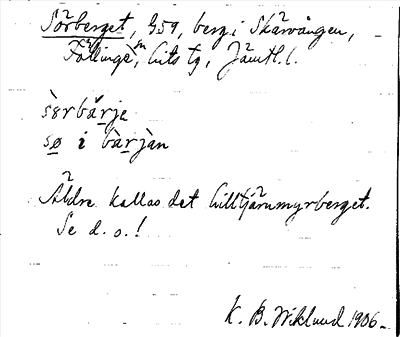 Sörberget, 459, berg i Skärvången,
Föllinge sn, Lits tg, Jämtl. l.
sèrbǻrje
sø i bàrjàn
Äldre kallas det Lilltjärnmyrberget.
Se d. o.!
K. B. Wiklund 1906.